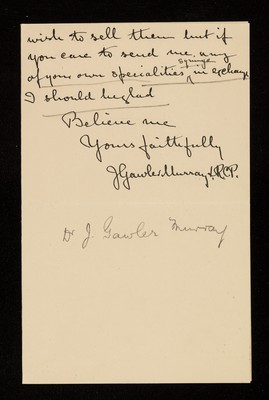 wish to sell them but if
you care to send me any
syringe
of your own specialities in exchange
I should be glad
Believe me
Yours faithfully
J Gawler Murray L.R.C.P.
Dr J. Gawler Murray